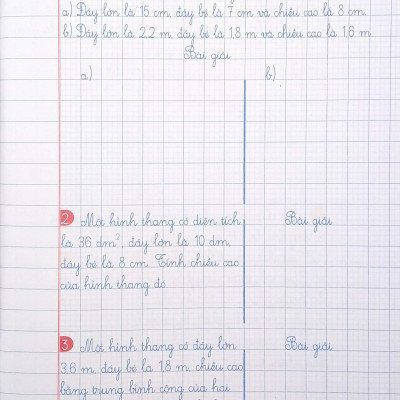 a) Đáy lớn là 15 cm, đáy bé là 7 cm và chiều cao là 8 cm.
b) Đáy lớn là 2,2 m, đáy bé là 1,8 m và chiều cao là 1,6 m.
Bài giải
a) b)
2 Một hình thang có diện tích
là 36 dm², đáy lớn là 10 dm,
đáy bé là 8 cm. Tính chiều cao
của hình thang đó.
Bài giải
3 Một hình thang có đáy lớn
3,6 m, đáy bé là 1,8 m, chiều cao
bằng trung bình cộng của hai
Bài giải